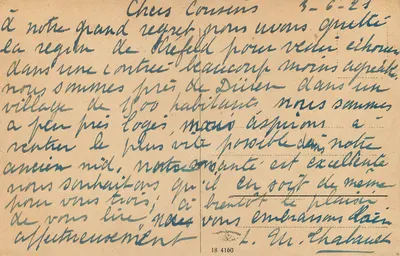 Chers Cousins 3-6-21
à notre grand regret, nous avons quitté
la region de Krefeld pour venir echouer
dans une contrée beaucoup moins agréable
nous sommes près de Düren dans un
village de 1500 habitants nous sommes
a peu près logés mais aspirons à
rentrer le plus vite possible dans notre
ancien nid. notre santé est excellente
nous souhaitons qu'il en soit de même
pour vous trois; à bientôt le plaisir
de vous lire, nous vous embrassons bien
affectueusement L. M. Chabanet
18 4100